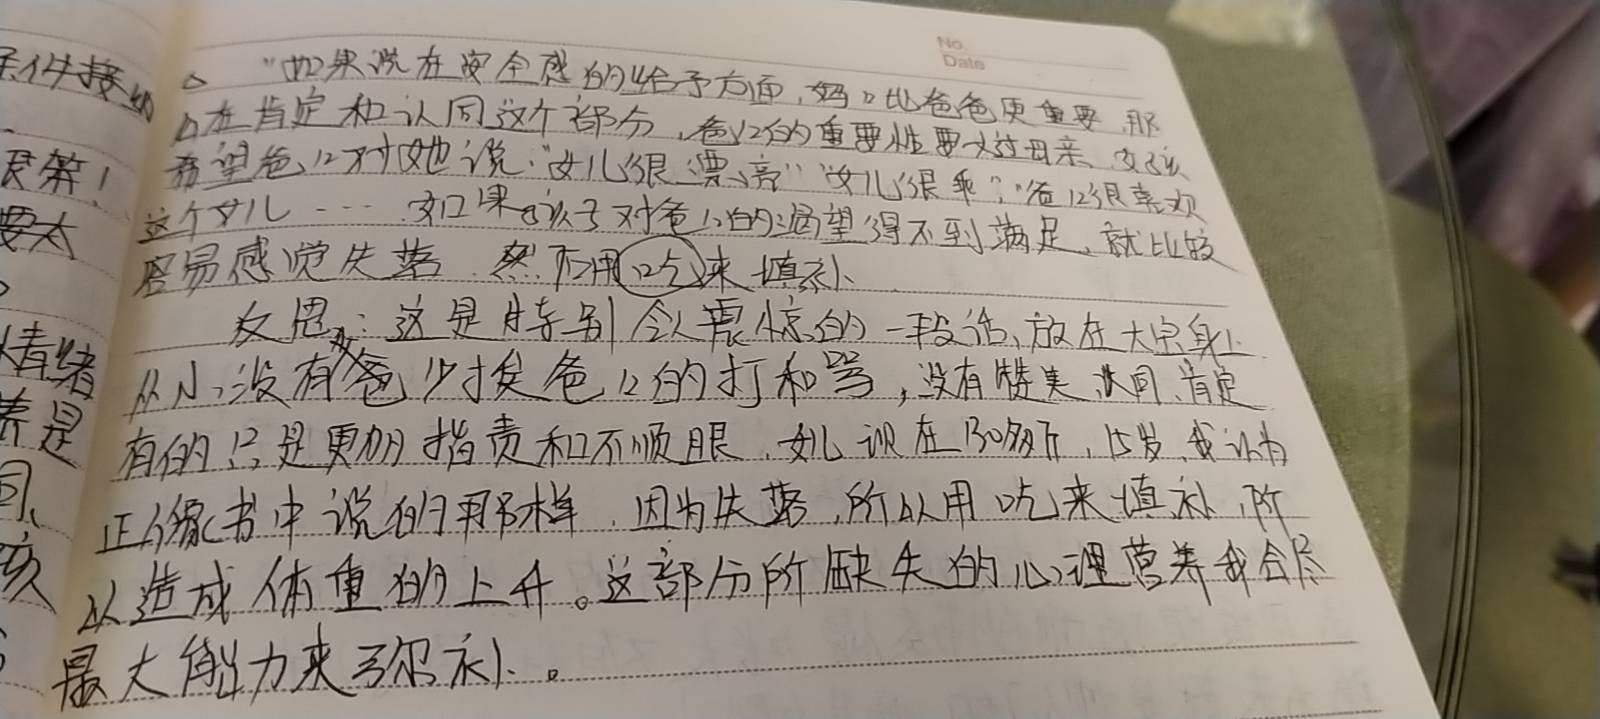 No.
Date
"如果说在安全感的给予方面,妈々比爸爸更重要,那
么在肯定和认同这个部分,爸爸的重要性要大过母亲,女孩
希望爸爸对她说:"女儿很漂亮""女儿很乖""爸爸很喜欢
这个女儿……如果孩子对爸爸的渴望得不到满足,就比较
容易感觉失落,然而用吃来填补
反思:这是特别令人震惊的一段话,放在大宝身上
从小没有少挨爸爸的打和骂,没有赞美、认同、肯定
有的只是更加指责和不顺眼,女儿现在130多斤,15岁,我认为
正像书中说的那样,因为失落,所以用吃来填补,所
以造成体重的上升。这部分所缺失的心理营养我会尽
最大能力来弥补。
条件接纳
要大
情绪
养是
同、
孩